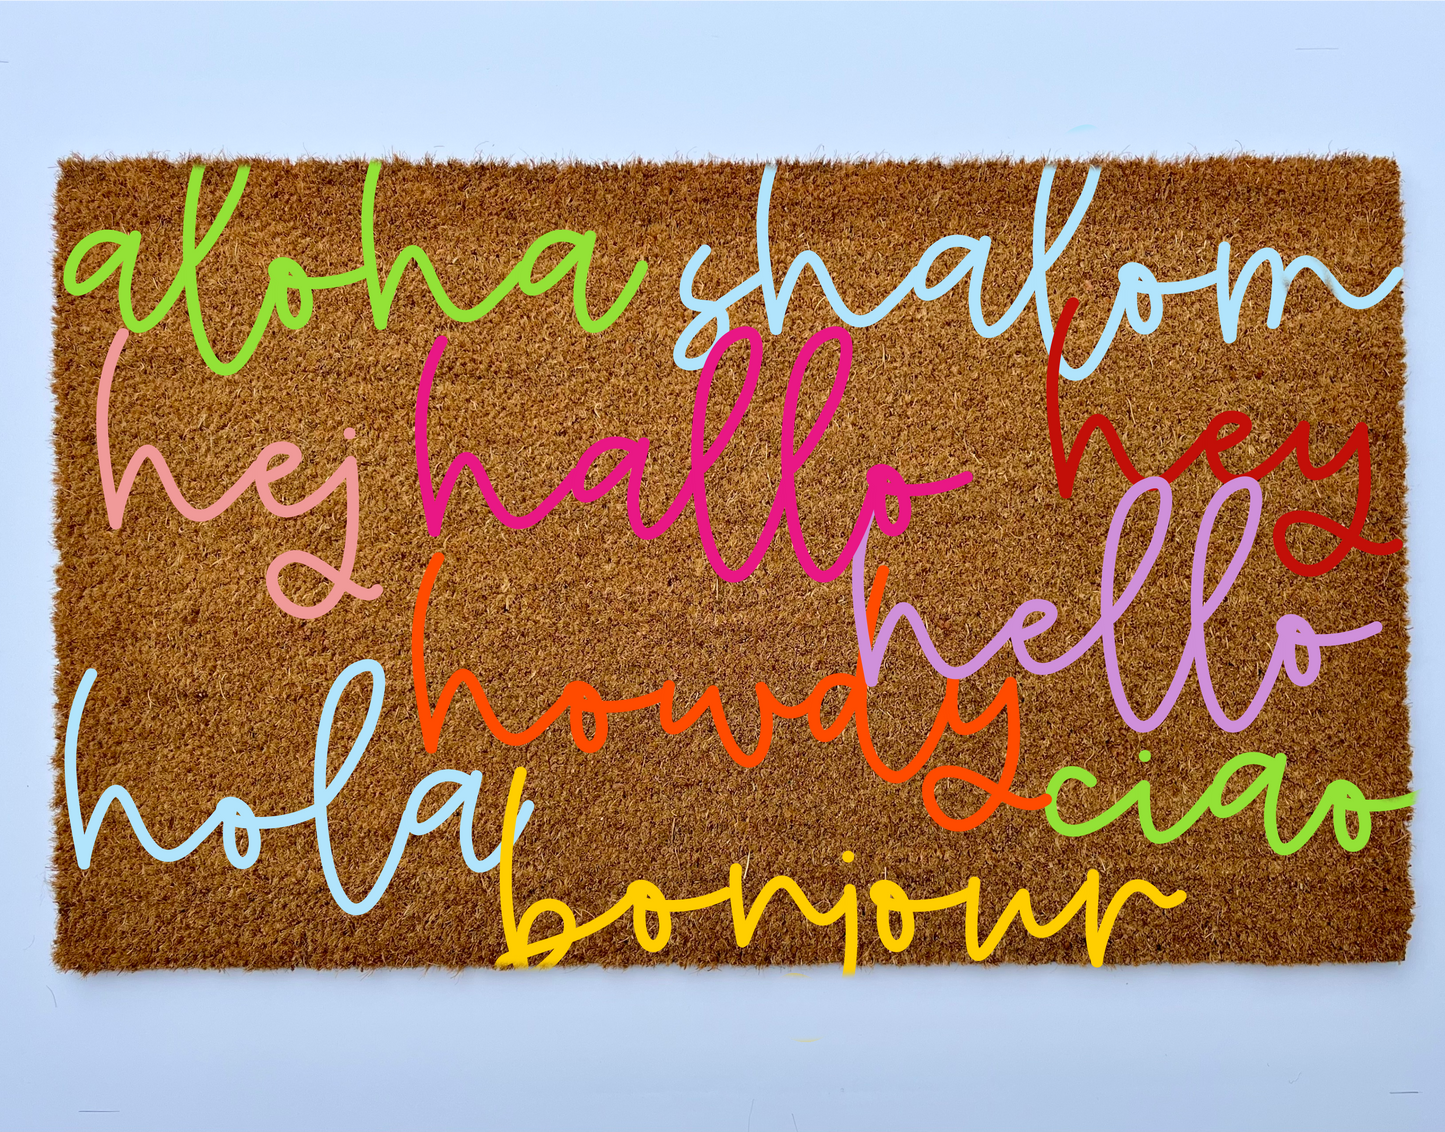 aloha shalom
hej hallo hey
howdy hello
hola ciao
bonjour